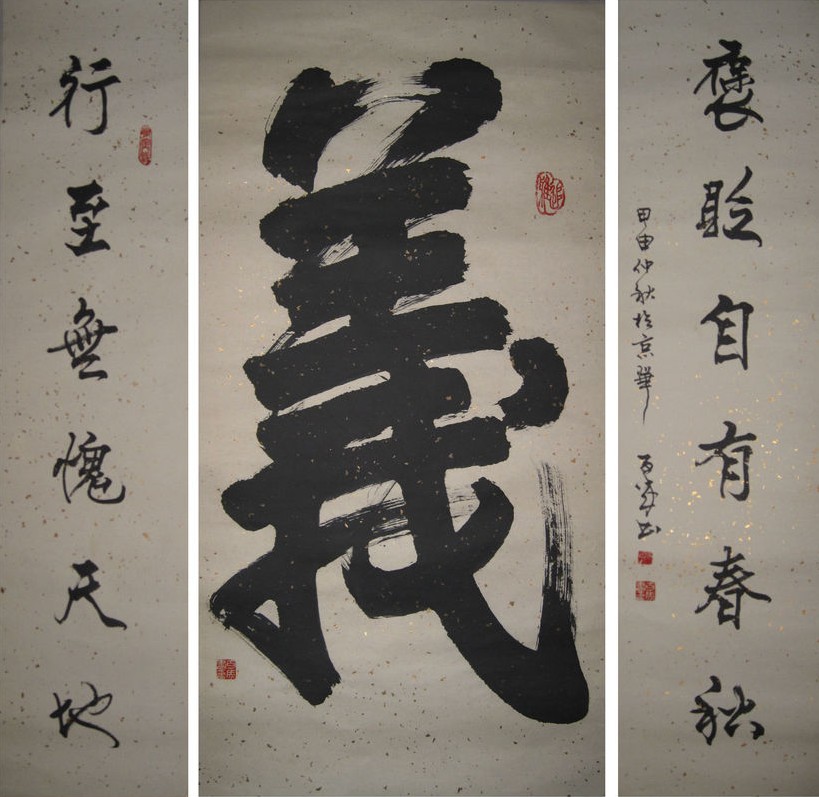 行至無愧天地
義
褒貶自有春秋
甲申仲秋於京華